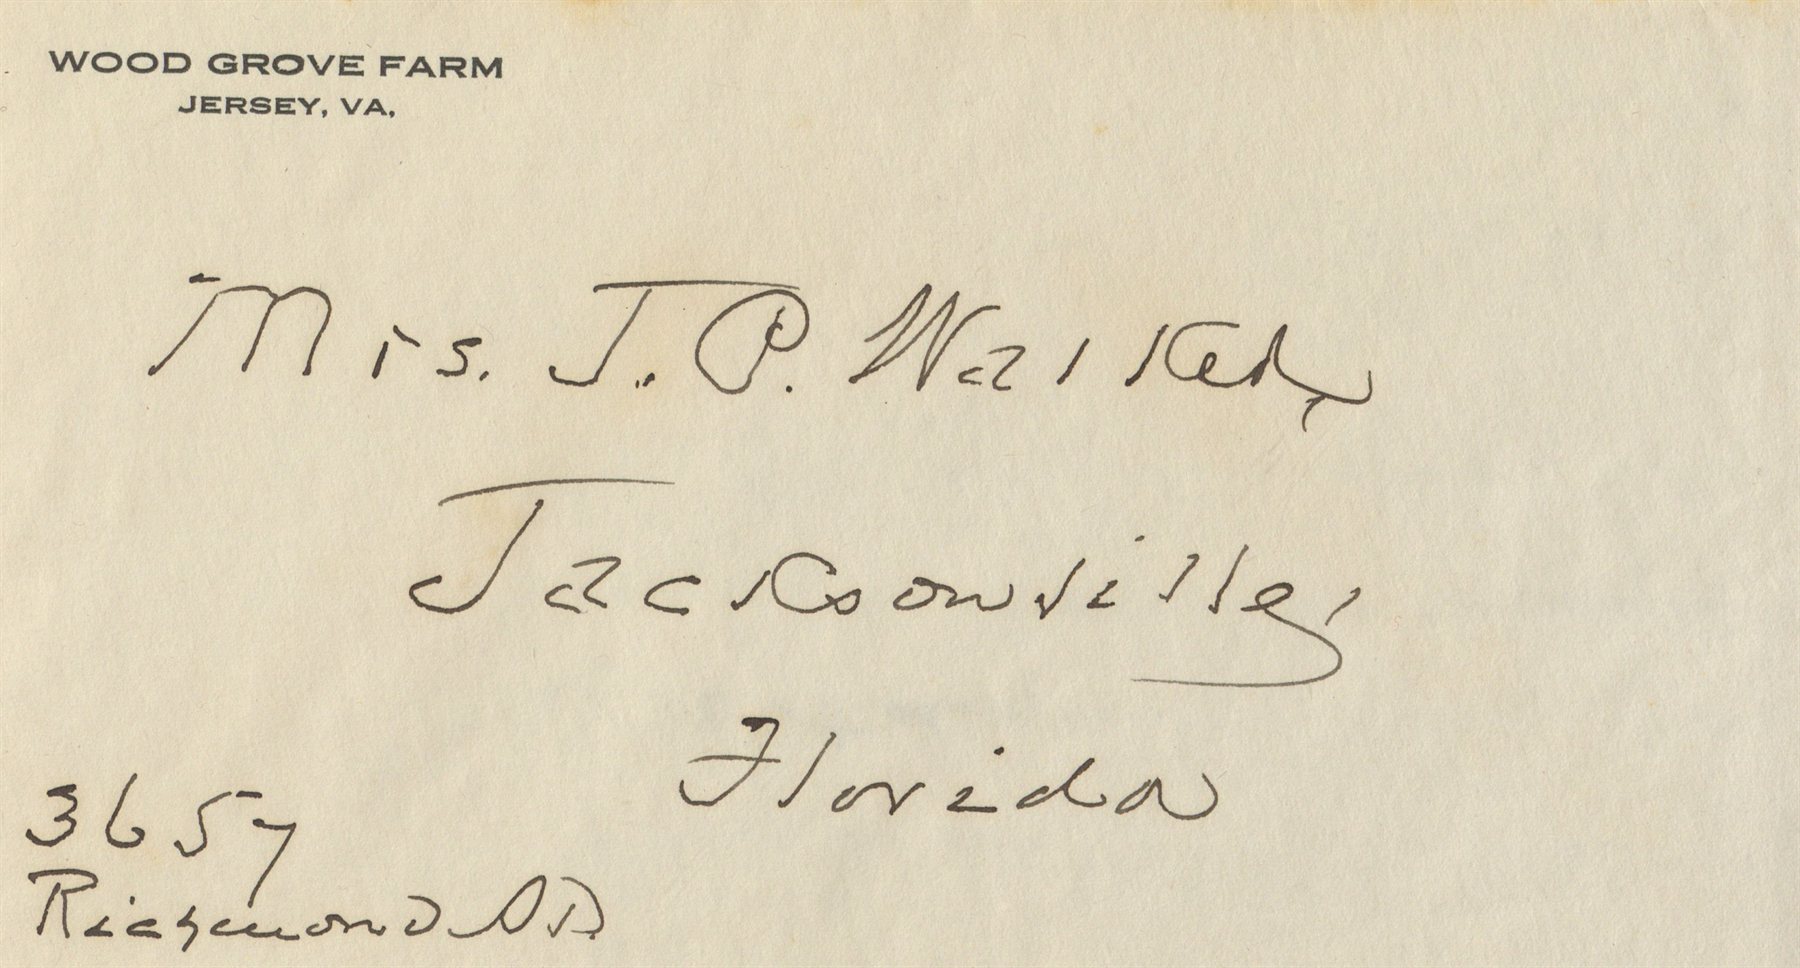 WOOD GROVE FARM
JERSEY, VA.
Mrs. J. P. Walker,
Jacksonville,
Florida
3657
Richmond